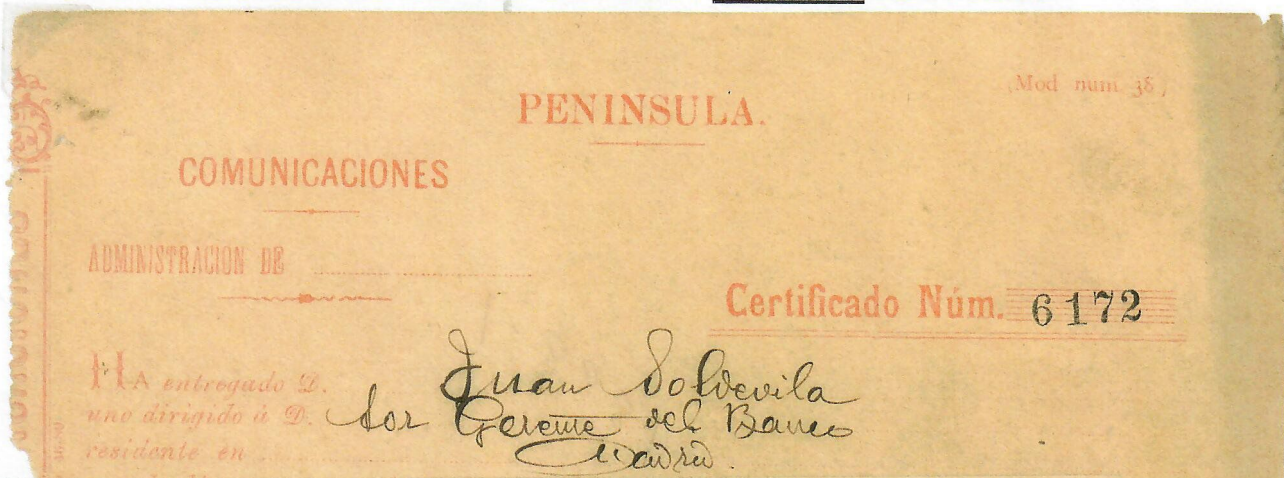 (Mod num. 38)
PENINSULA.
COMUNICACIONES
ADMINISTRACION DE
Certificado Núm. 6172
HA entregado D. Juan Soldevila
uno dirigido á D. Sor Gerente del Banco
residente en Madrid.